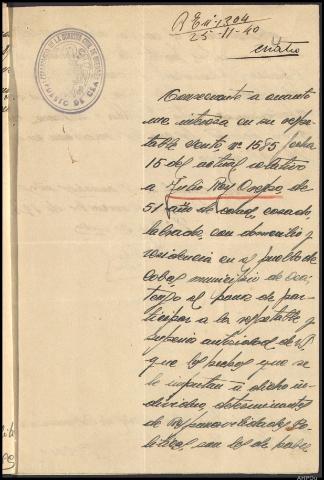 R E nº 1304
25-11-40
COMANDANCIA DE LA GUARDIA CIVIL DE
PUESTO DE CEA
Consecuente a cuanto
me interesa en su respe-
table escrito nº 1585 fecha
15 del actual relativo
a Julio Rey Ocampo, de
51 años de edad, casado,
labrador, con domicilio y
residencia en el pueblo de
Cobas, municipio de Cea;
tengo el honor de par-
ticipar a la respetable y
superior autoridad de V.
que los hechos que se
le imputan a dicho in-
dividuo, determinantes
de responsabilidades Po-
líticas, son los de haber
AHPOu